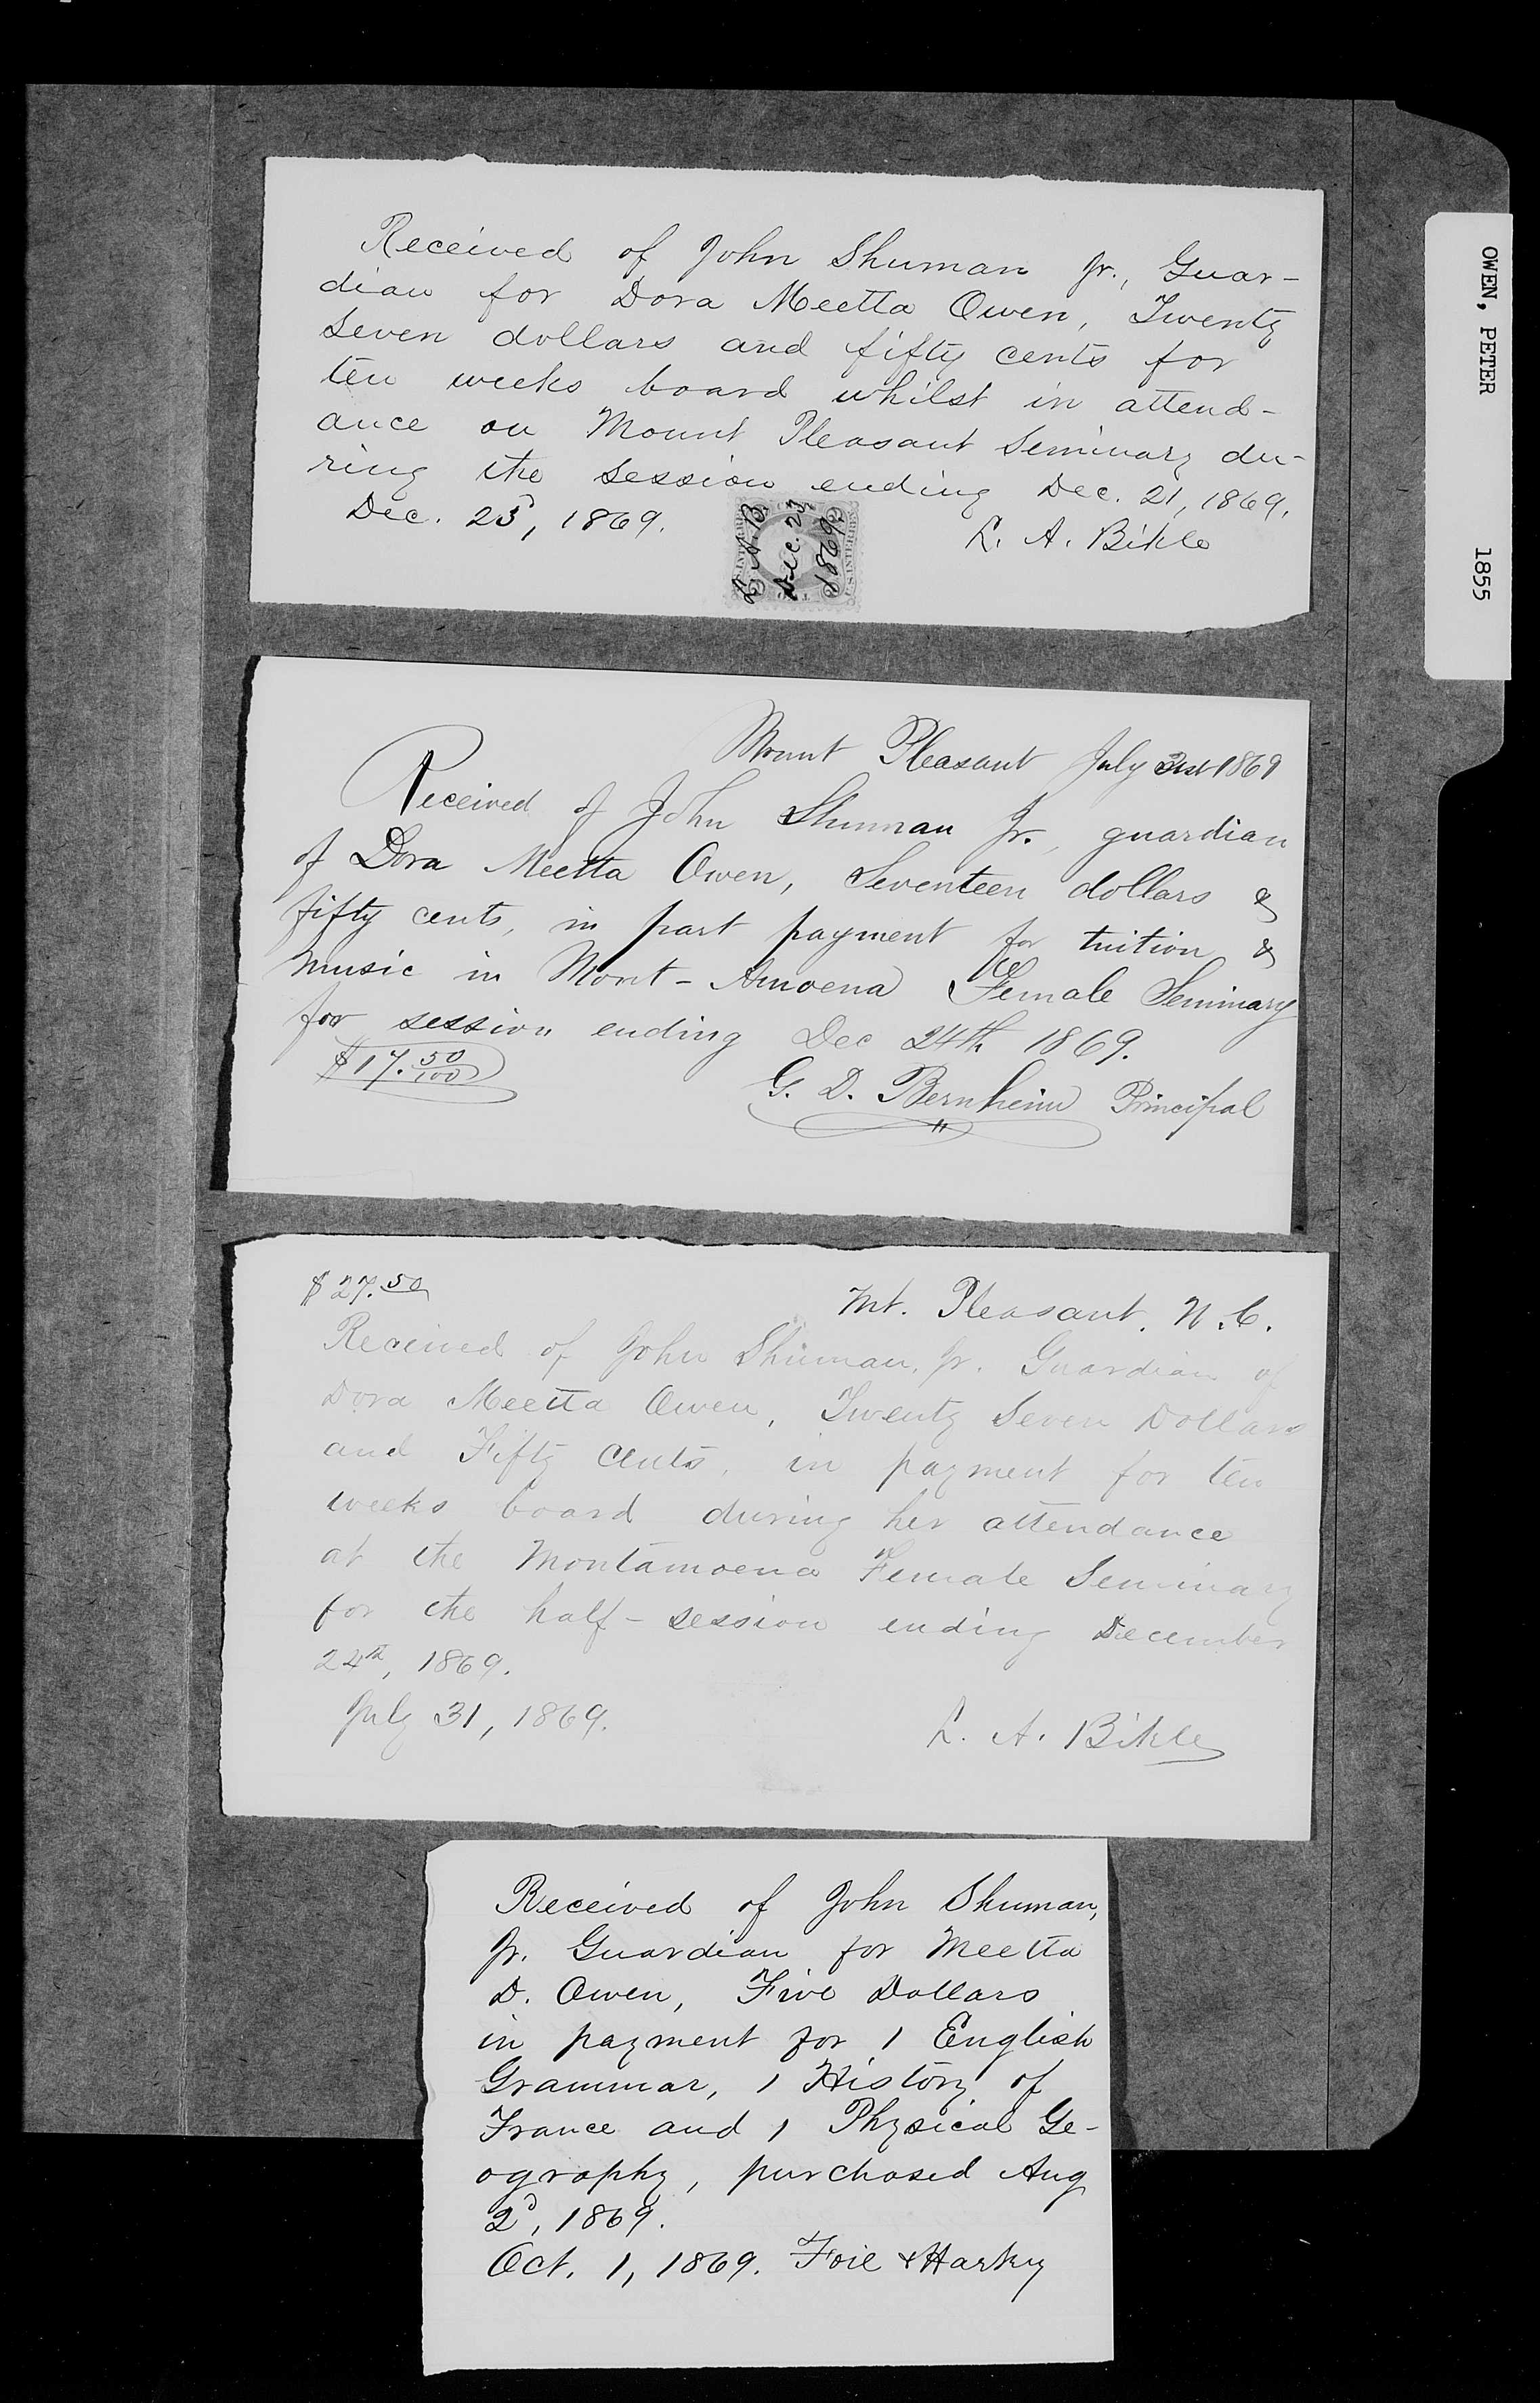 OWEN, PETER 1855
Received of John Shuman Jr., Guar-
dian for Dora Meetta Owen, Twenty
Seven dollars and fifty cents for
ten weeks board whilst in attend-
ance on Mount Pleasant Seminary du-
ring the session ending Dec. 21, 1869.
Dec. 23, 1869.
L. A. B
Dec. 23
1869
L. A. Bikle
Mount Pleasant July 31st 1869
Received of John Shuman Jr., guardian
of Dora Meetta Owen, Seventeen dollars &
fifty cents, in part payment for tuition &
music in Mont-Amoena Female Seminary
for session ending Dec 24th 1869.
$17.50/100
G. D. Bernheim Principal
$27.50
Mt. Pleasant, N.C.
Received of John Shuman, Jr. Guardian of
Dora Meetta Owen, Twenty Seven Dollars
and Fifty Cents, in payment for ten
weeks board during her attendance
at the Montamoena Female Seminary
for the half-session ending December
24th, 1869.
July 31, 1869.
L. A. Bikle
Received of John Shuman,
Jr. Guardian for Meetta
D. Owen, Five Dollars
in payment for 1 English
Grammar, 1 History of
France and 1 Physical Ge-
ography, purchased Aug
2d, 1869.
Oct. 1, 1869. Foil & Harkey